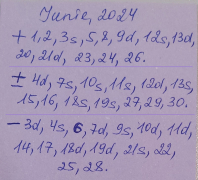 Junie, 2024
+ 1, 2, 3s, 5, 8, 9d, 12s, 13d,
20, 21d, 23, 24, 26.
± 4d, 7s, 10s, 11s, 12d, 13s,
15, 16, 18s, 19s, 27, 29, 30.
- 3d, 4s, 6, 7d, 9s, 10d, 11d,
14, 17, 18d, 19d, 21s, 22,
25, 28.